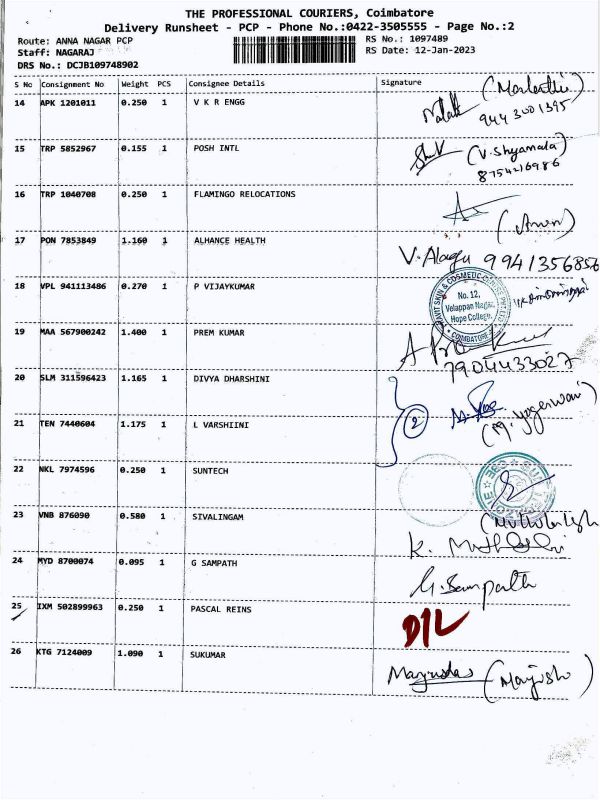 THE PROFESSIONAL COURIERS, Coimbatore
Delivery Runsheet - PCP - Phone No.:0422-3505555 - Page No.:2
Route: ANNA NAGAR PCP
Staff: NAGARAJ
DRS No.: DCJB109748902
RS No.: 1097489
RS Date: 12-Jan-2023
S No Consignment No Weight PCS Consignee Details Signature
14 APK 1201011 0.250 1 V K R ENGG
9443001395
15 TRP 5852967 0.155 1 POSH INTL
(V. Shyamala)
8754216986
16 TRP 1040708 0.250 1 FLAMINGO RELOCATIONS
17 PON 7853849 1.160 1 ALHANCE HEALTH
V. Alagu 9941356856
18 VPL 941113486 0.270 1 P VIJAYKUMAR
No. 12,
Velappan Nagar,
Hope College,
COIMBATORE
19 MAA 567900242 1.400 1 PREM KUMAR
7904433027
20 SLM 311596423 1.165 1 DIVYA DHARSHINI
2
(M. Yogeswari)
21 TEN 7440604 1.175 1 L VARSHIINI
22 NKL 7974596 0.250 1 SUNTECH
23 VNB 876090 0.580 1 SIVALINGAM
24 MYD 8700074 0.095 1 G SAMPATH
G. Sampath
25 IXM 502899963 0.250 1 PASCAL REINS
D/L
26 KTG 7124009 1.090 1 SUKUMAR